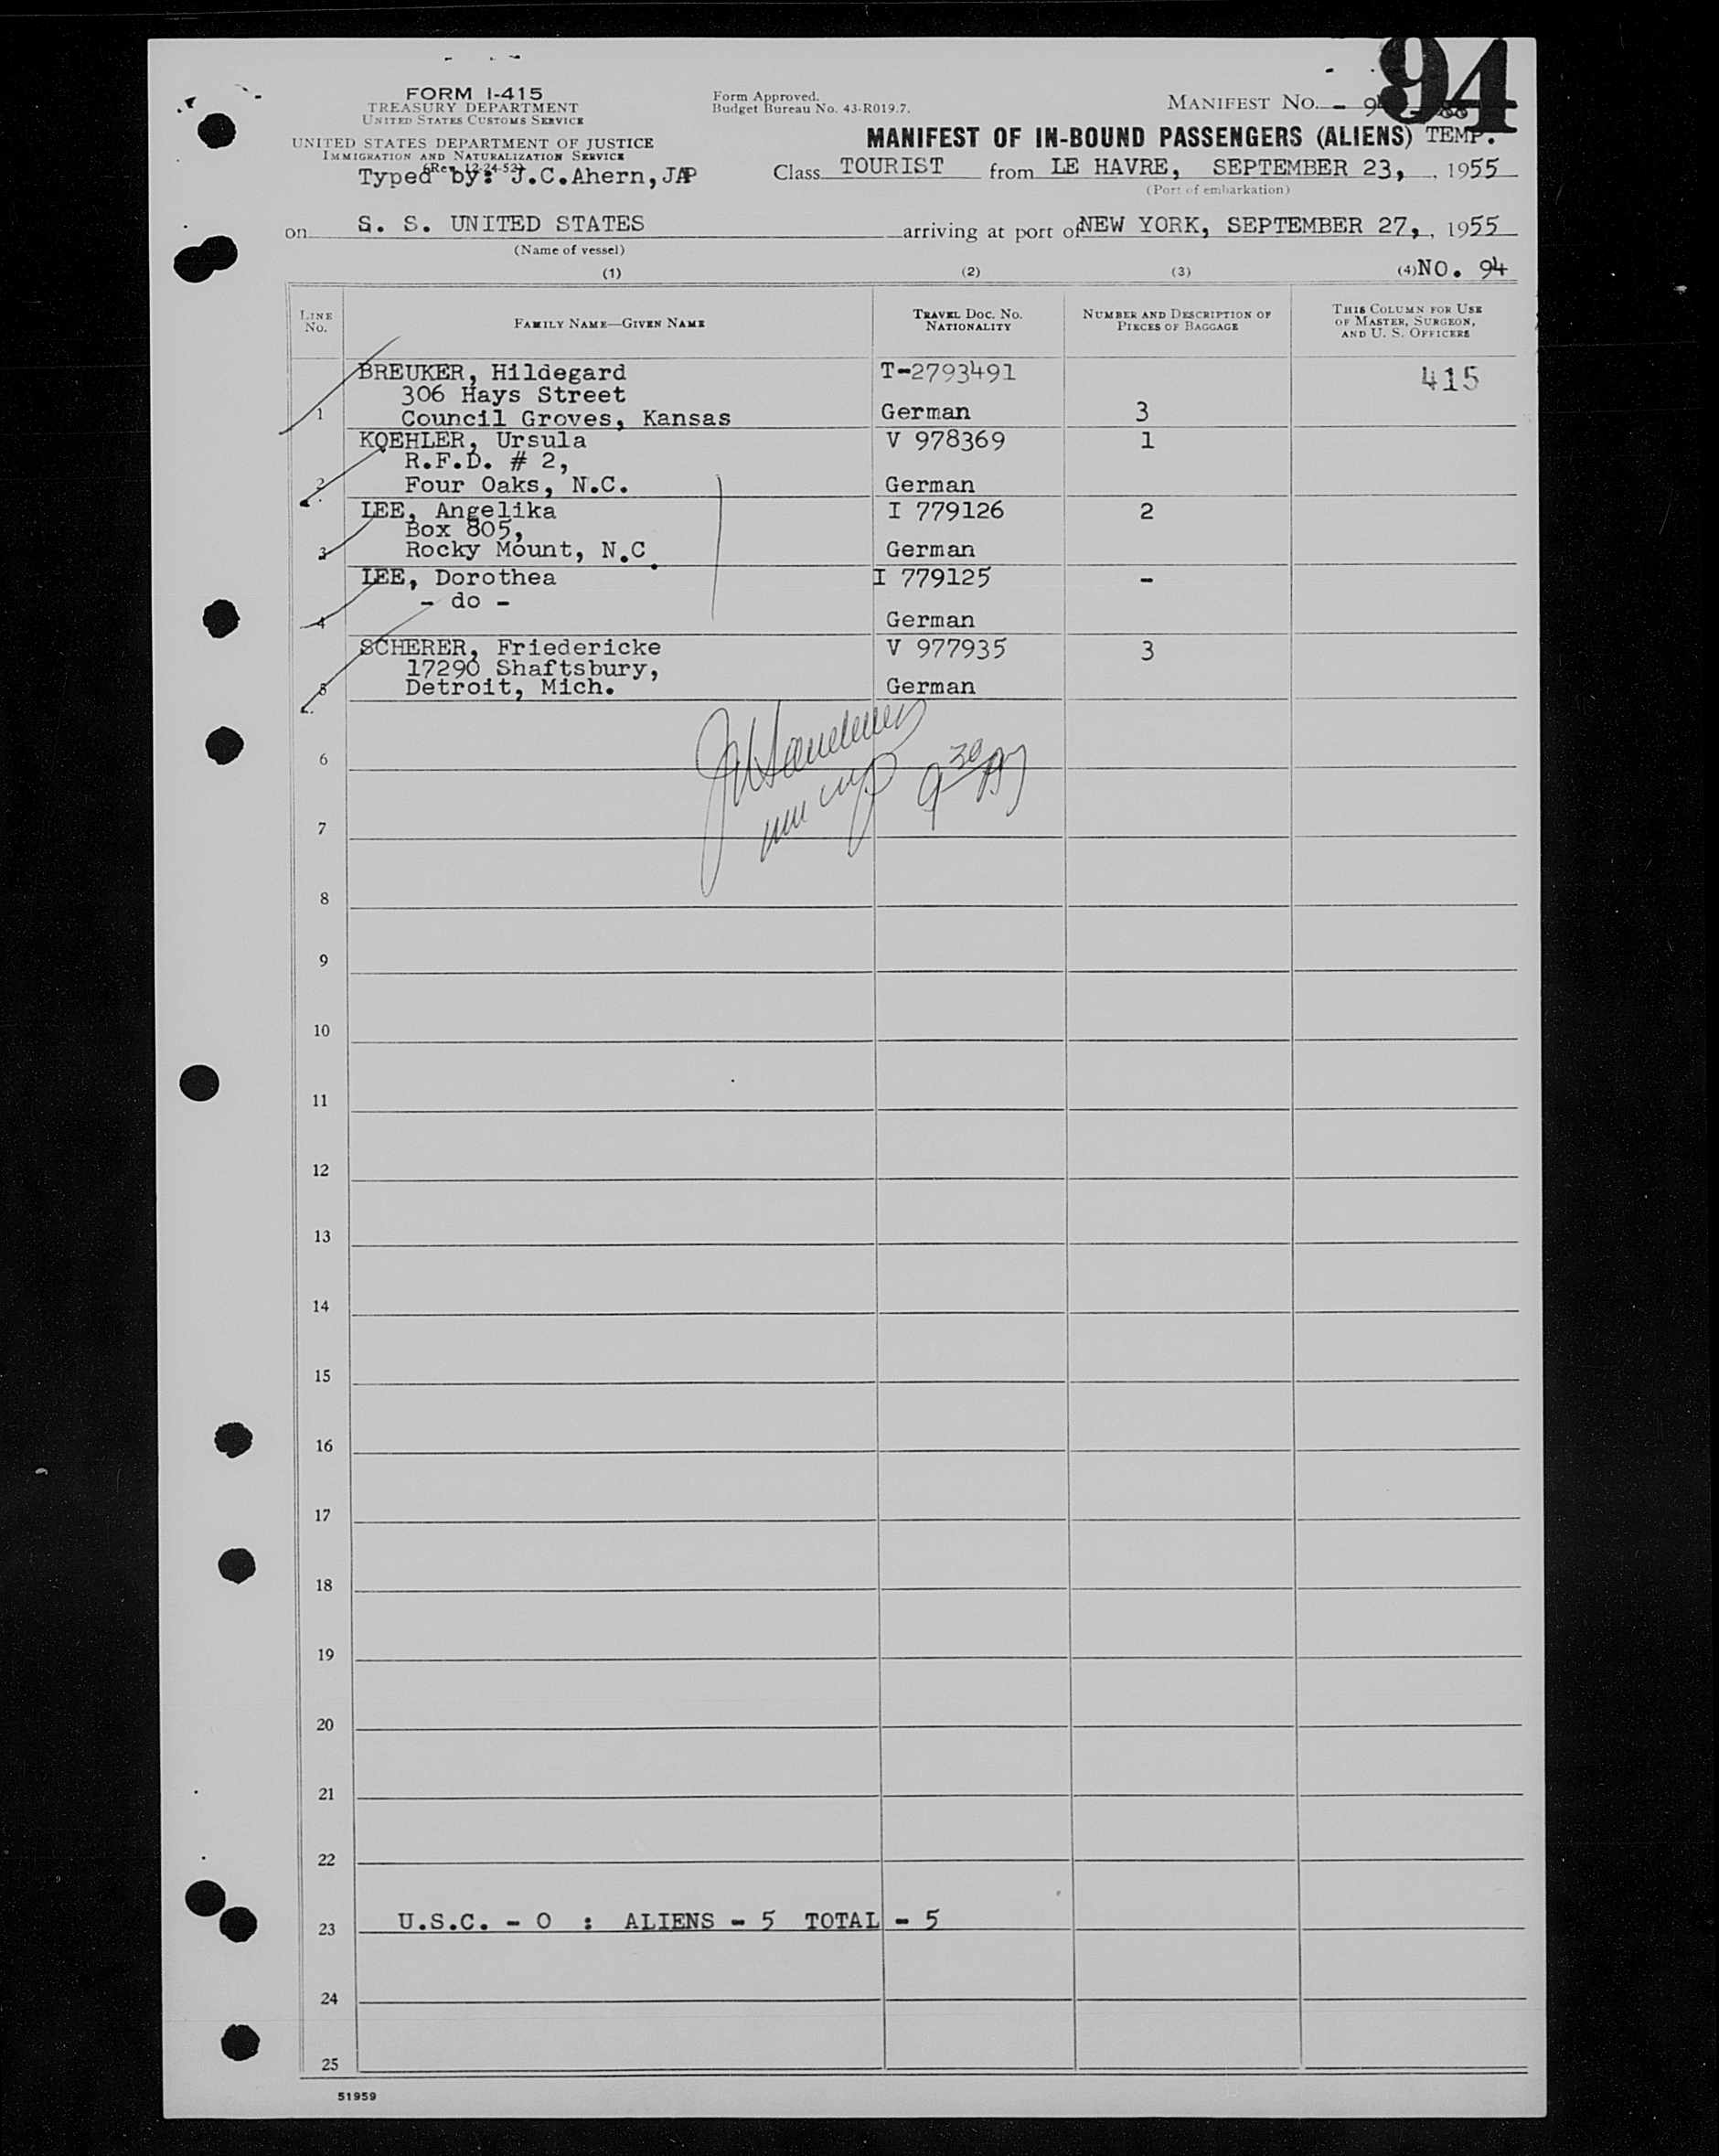 94
FORM I-415
TREASURY DEPARTMENT
UNITED STATES CUSTOMS SERVICE
UNITED STATES DEPARTMENT OF JUSTICE
IMMIGRATION AND NATURALIZATION SERVICE
(Rev. 12-24-52)
Typed by: J.C.Ahern, JAP
Form Approved.
Budget Bureau No. 43-R019.7.
MANIFEST NO. - 9
MANIFEST OF IN-BOUND PASSENGERS (ALIENS) TEMP.
Class TOURIST from LE HAVRE, SEPTEMBER 23, , 1955
(Port of embarkation)
on S. S. UNITED STATES arriving at port of NEW YORK, SEPTEMBER 27, , 1955
(Name of vessel)
(1) (2) (3) (4) NO. 94
LINE NO. FAMILY NAME—GIVEN NAME TRAVEL DOC. NO. NATIONALITY NUMBER AND DESCRIPTION OF PIECES OF BAGGAGE THIS COLUMN FOR USE OF MASTER, SURGEON, AND U. S. OFFICERS
BREUKER, Hildegard T-2793491 415
306 Hays Street
1 Council Groves, Kansas German 3
KOEHLER, Ursula V 978369 1
R.F.D. # 2,
2 Four Oaks, N.C. German
LEE, Angelika I 779126 2
Box 805,
3 Rocky Mount, N.C. German
LEE, Dorothea I 779125 -
- do -
4 German
SCHERER, Friedericke V 977935 3
17290 Shaftsbury,
5 Detroit, Mich. German
6
9 30
7
8
9
10
11
12
13
14
15
16
17
18
19
20
21
22
23 U.S.C. - 0 : ALIENS - 5 TOTAL - 5
24
25
51959